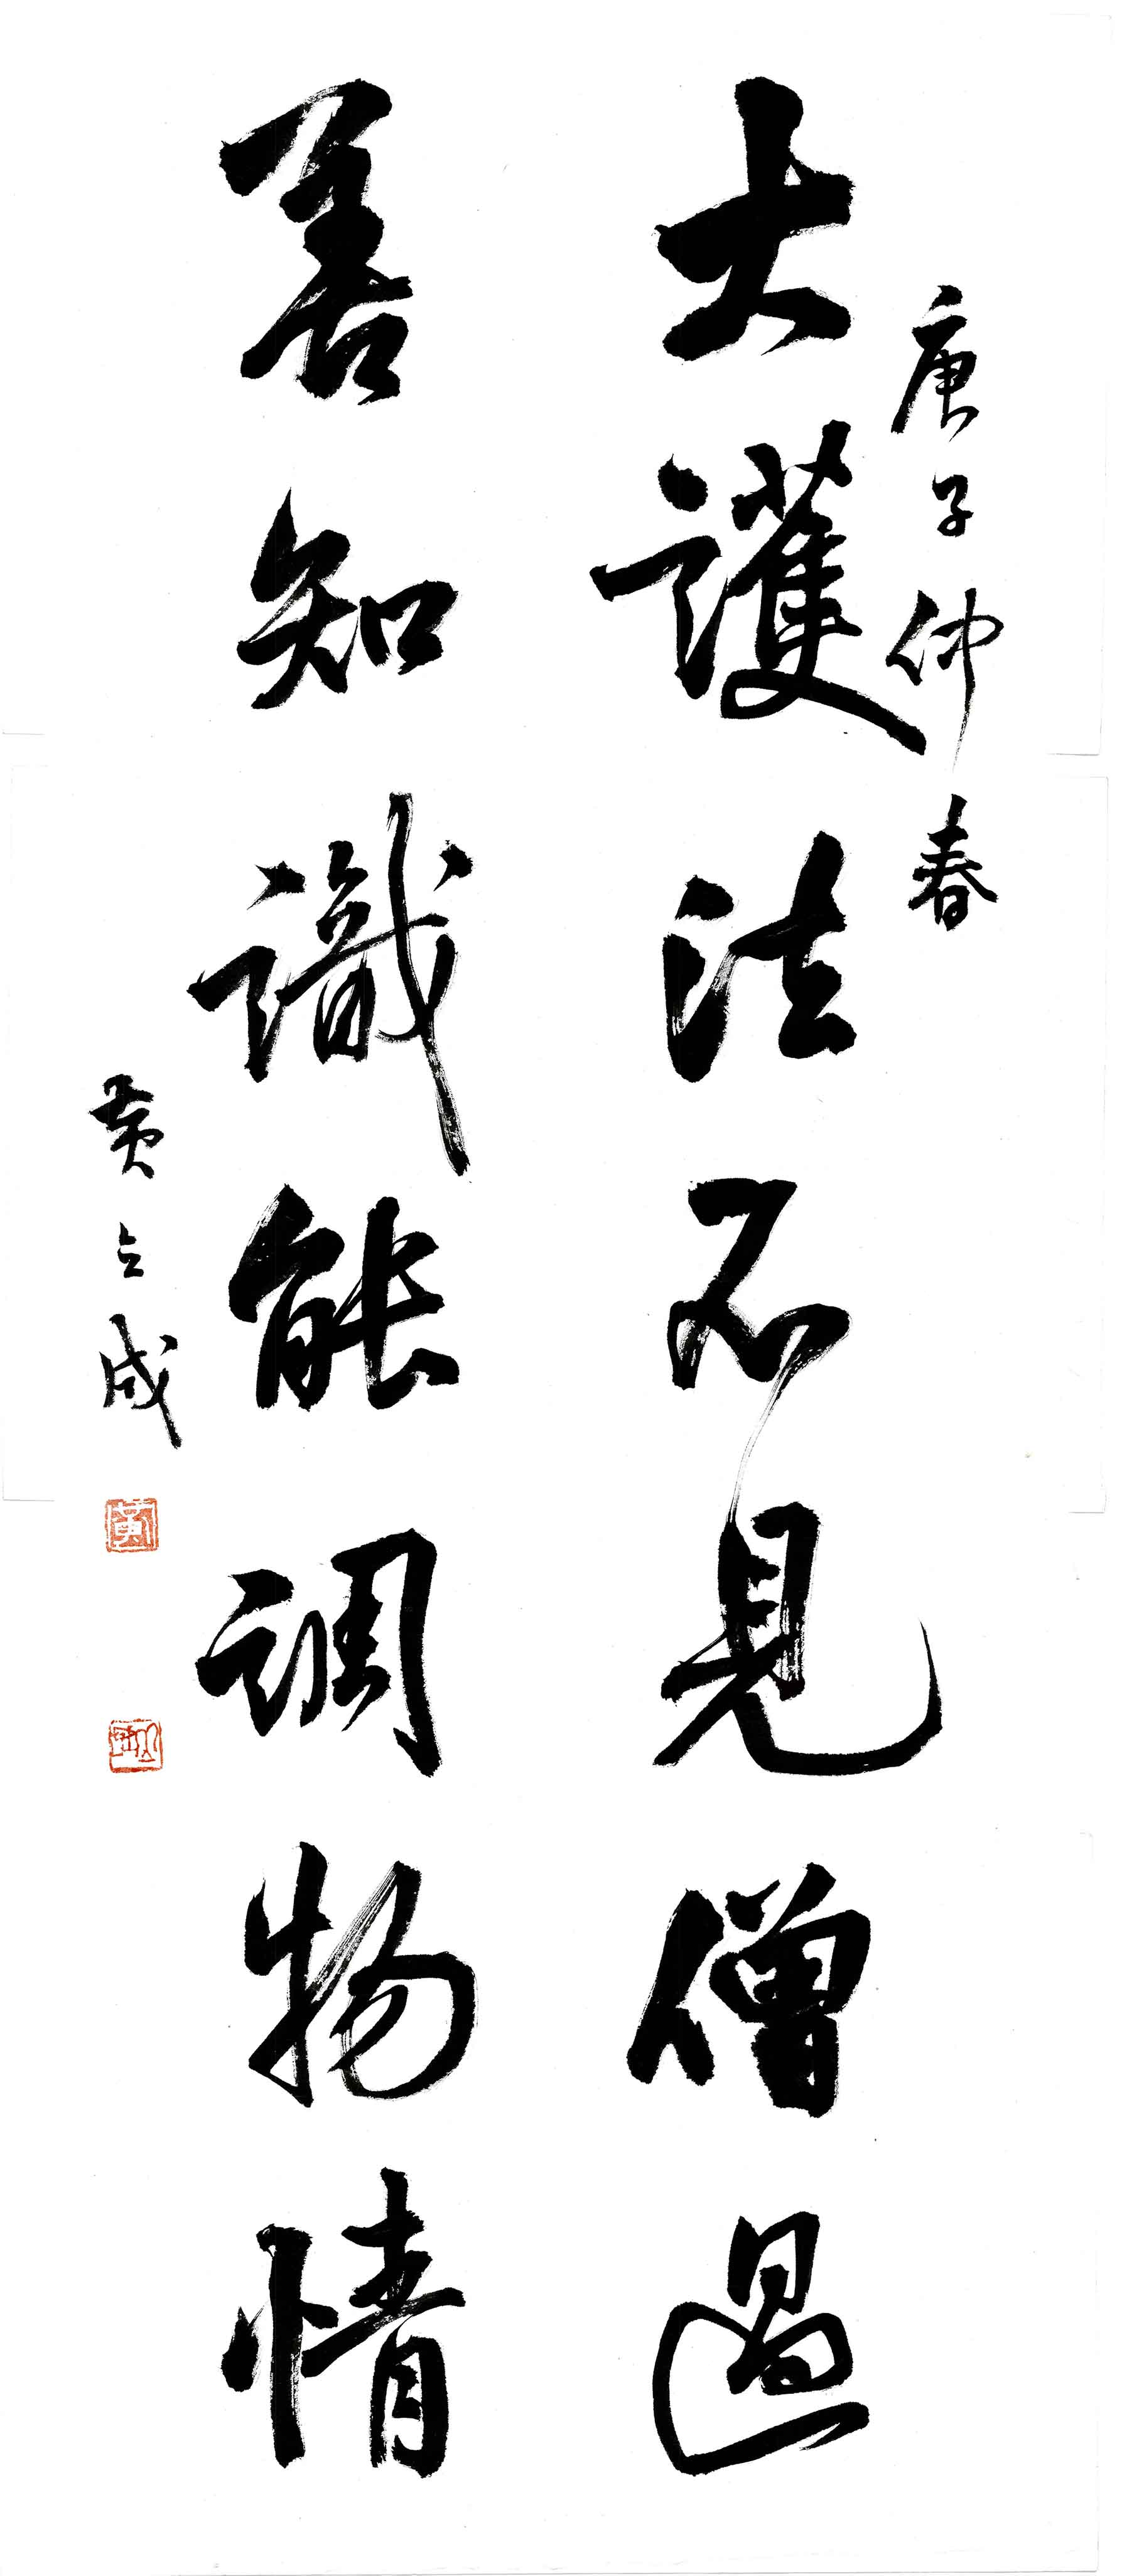 庚子仲春
大護法不見僧過
善知識能调物情
黄立成
黄